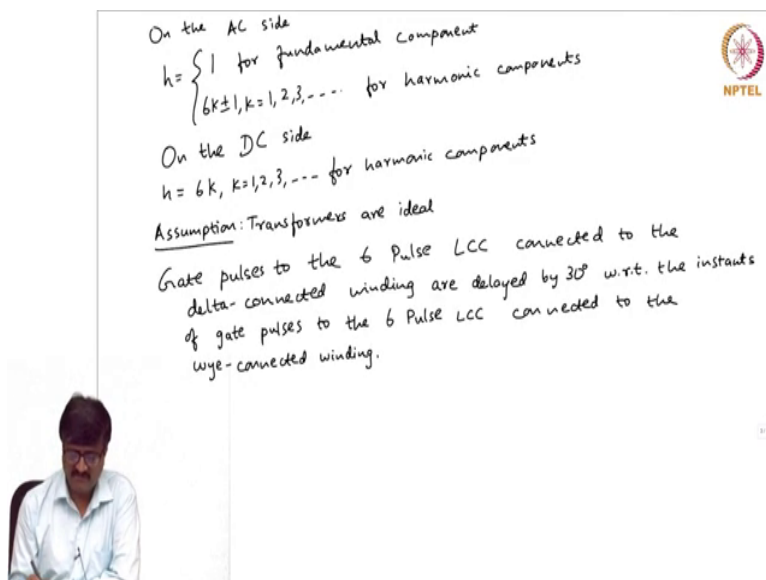 On the AC side
h = { 1 for fundamental component
6k±1, k=1,2,3,---- for harmonic components
On the DC side
h = 6k, k=1,2,3,--- for harmonic components
Assumption: Transformers are ideal
Gate pulses to the 6 Pulse LCC connected to the
delta-connected winding are delayed by 30° w.r.t. the instants
of gate pulses to the 6 Pulse LCC connected to the
wye-connected winding.
NPTEL